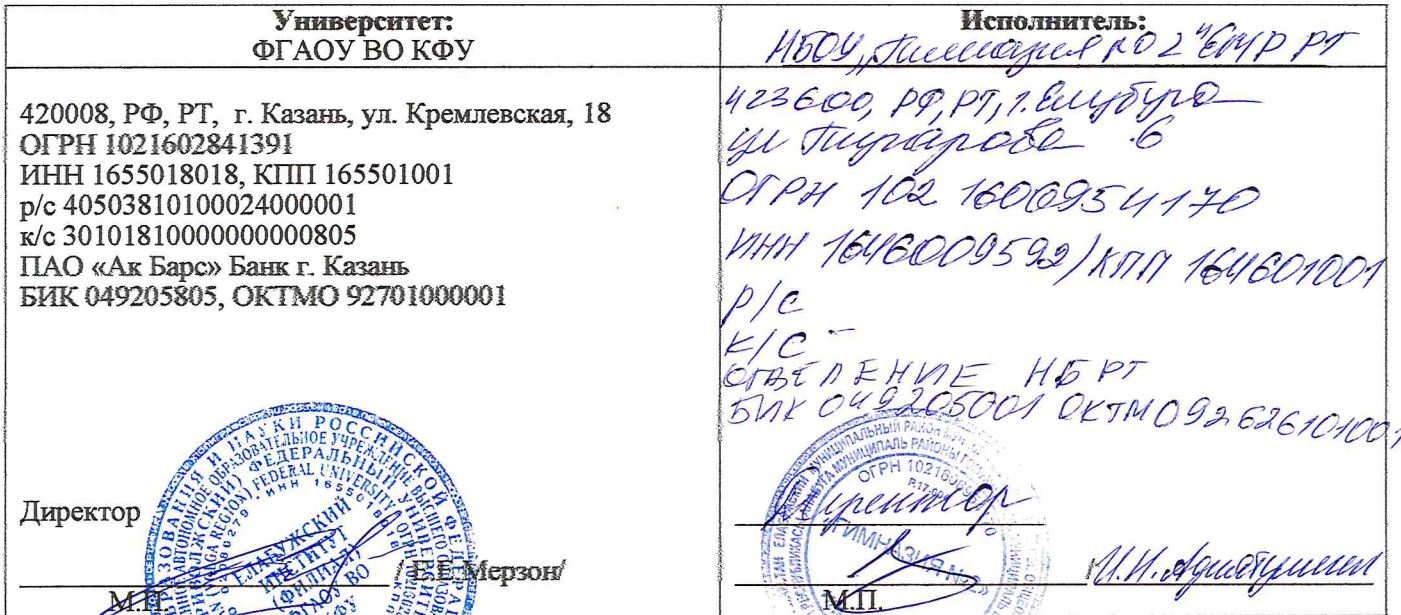 Университет:
ФГАОУ ВО КФУ
420008, РФ, РТ, г. Казань, ул. Кремлевская, 18
ОГРН 1021602841391
ИНН 1655018018, КПП 165501001
р/с 40503810100024000001
к/с 30101810000000000805
ПАО «Ак Барс» Банк г. Казань
БИК 049205805, ОКТМО 92701000001
Директор
/ Е.Е.Мерзон/
М.П.
ЕЛАБУЖСКИЙ
ИНСТИТУТ
(ФИЛИАЛ)
ФГАОУ ВО
КФУ
Исполнитель:
МБОУ „Гимназия №2" ЕМР РТ
423600, РФ, РТ, г. Елабуга
ул 6
ОГРН 102 1606954170
ИНН 1646009592/ КПП 164601001
р/с
к/с -
ОТДЕЛЕНИЕ НБ РТ
БИК 049205001 ОКТМО 92626101001
Директор
«ГИМНАЗИЯ №2»
/ И.И.
М.П.